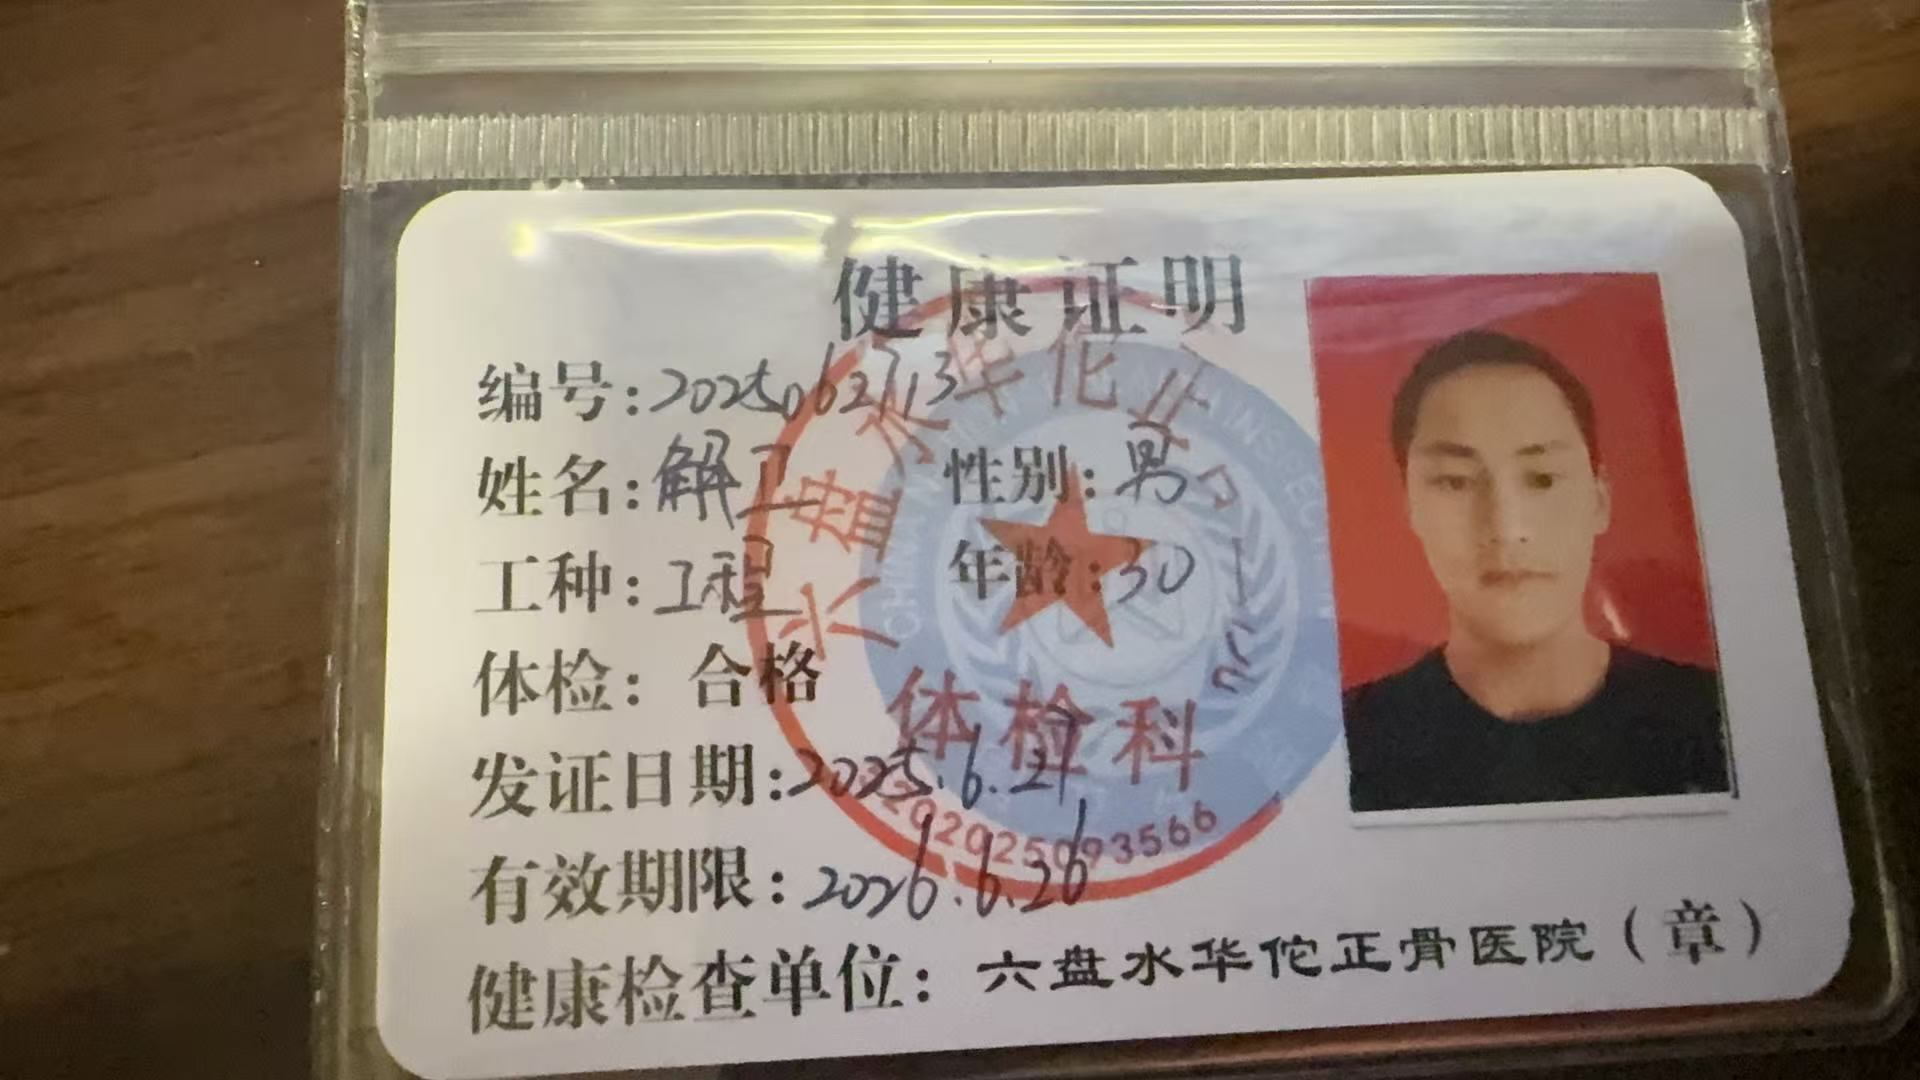 健康证明
编号:2025062713
姓名:解卫 性别:男
工种:工程 年龄:30
体检:合格
发证日期:2025.6.27
有效期限:2026.6.26
健康检查单位:六盘水华佗正骨医院(章)
六盘水华佗正骨医院
体检科
5202025093566